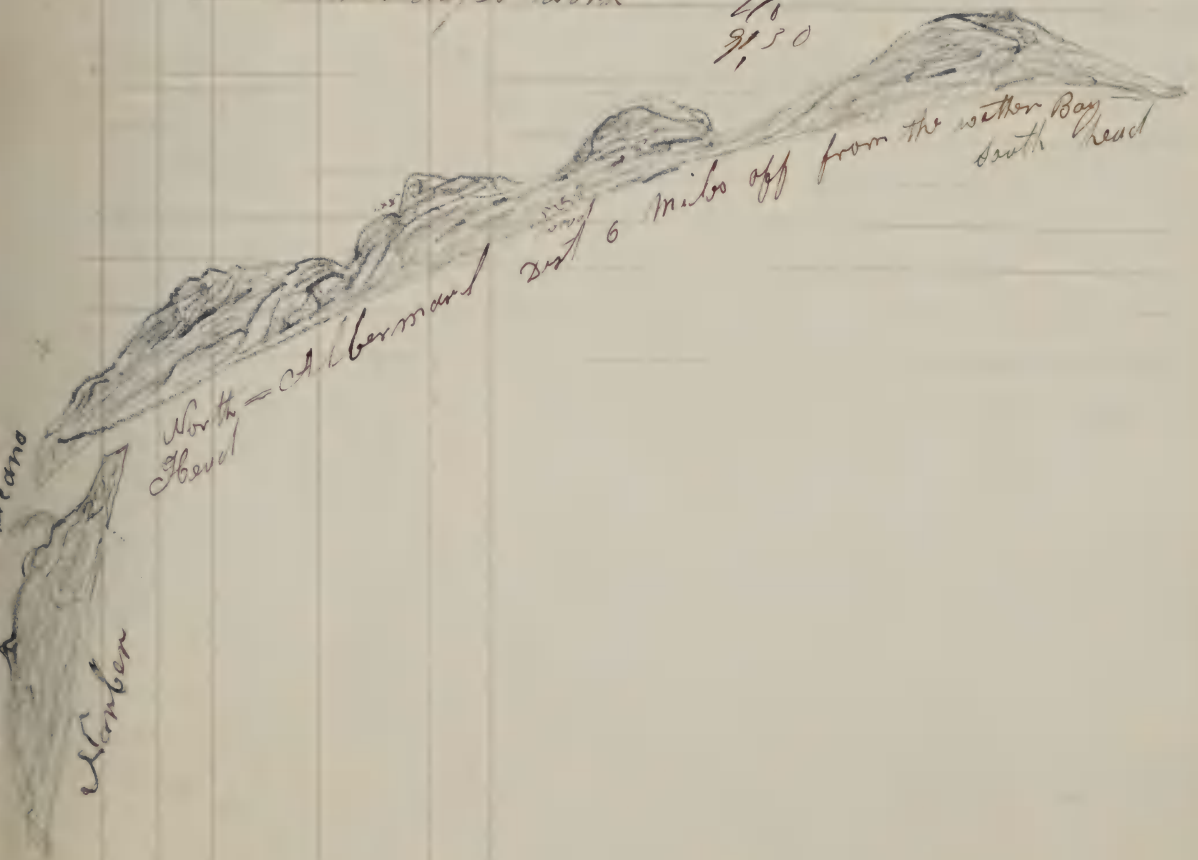 9,30
North = Albermarl Dist 6 miles off from the wather Bay
Head
South head
Narber